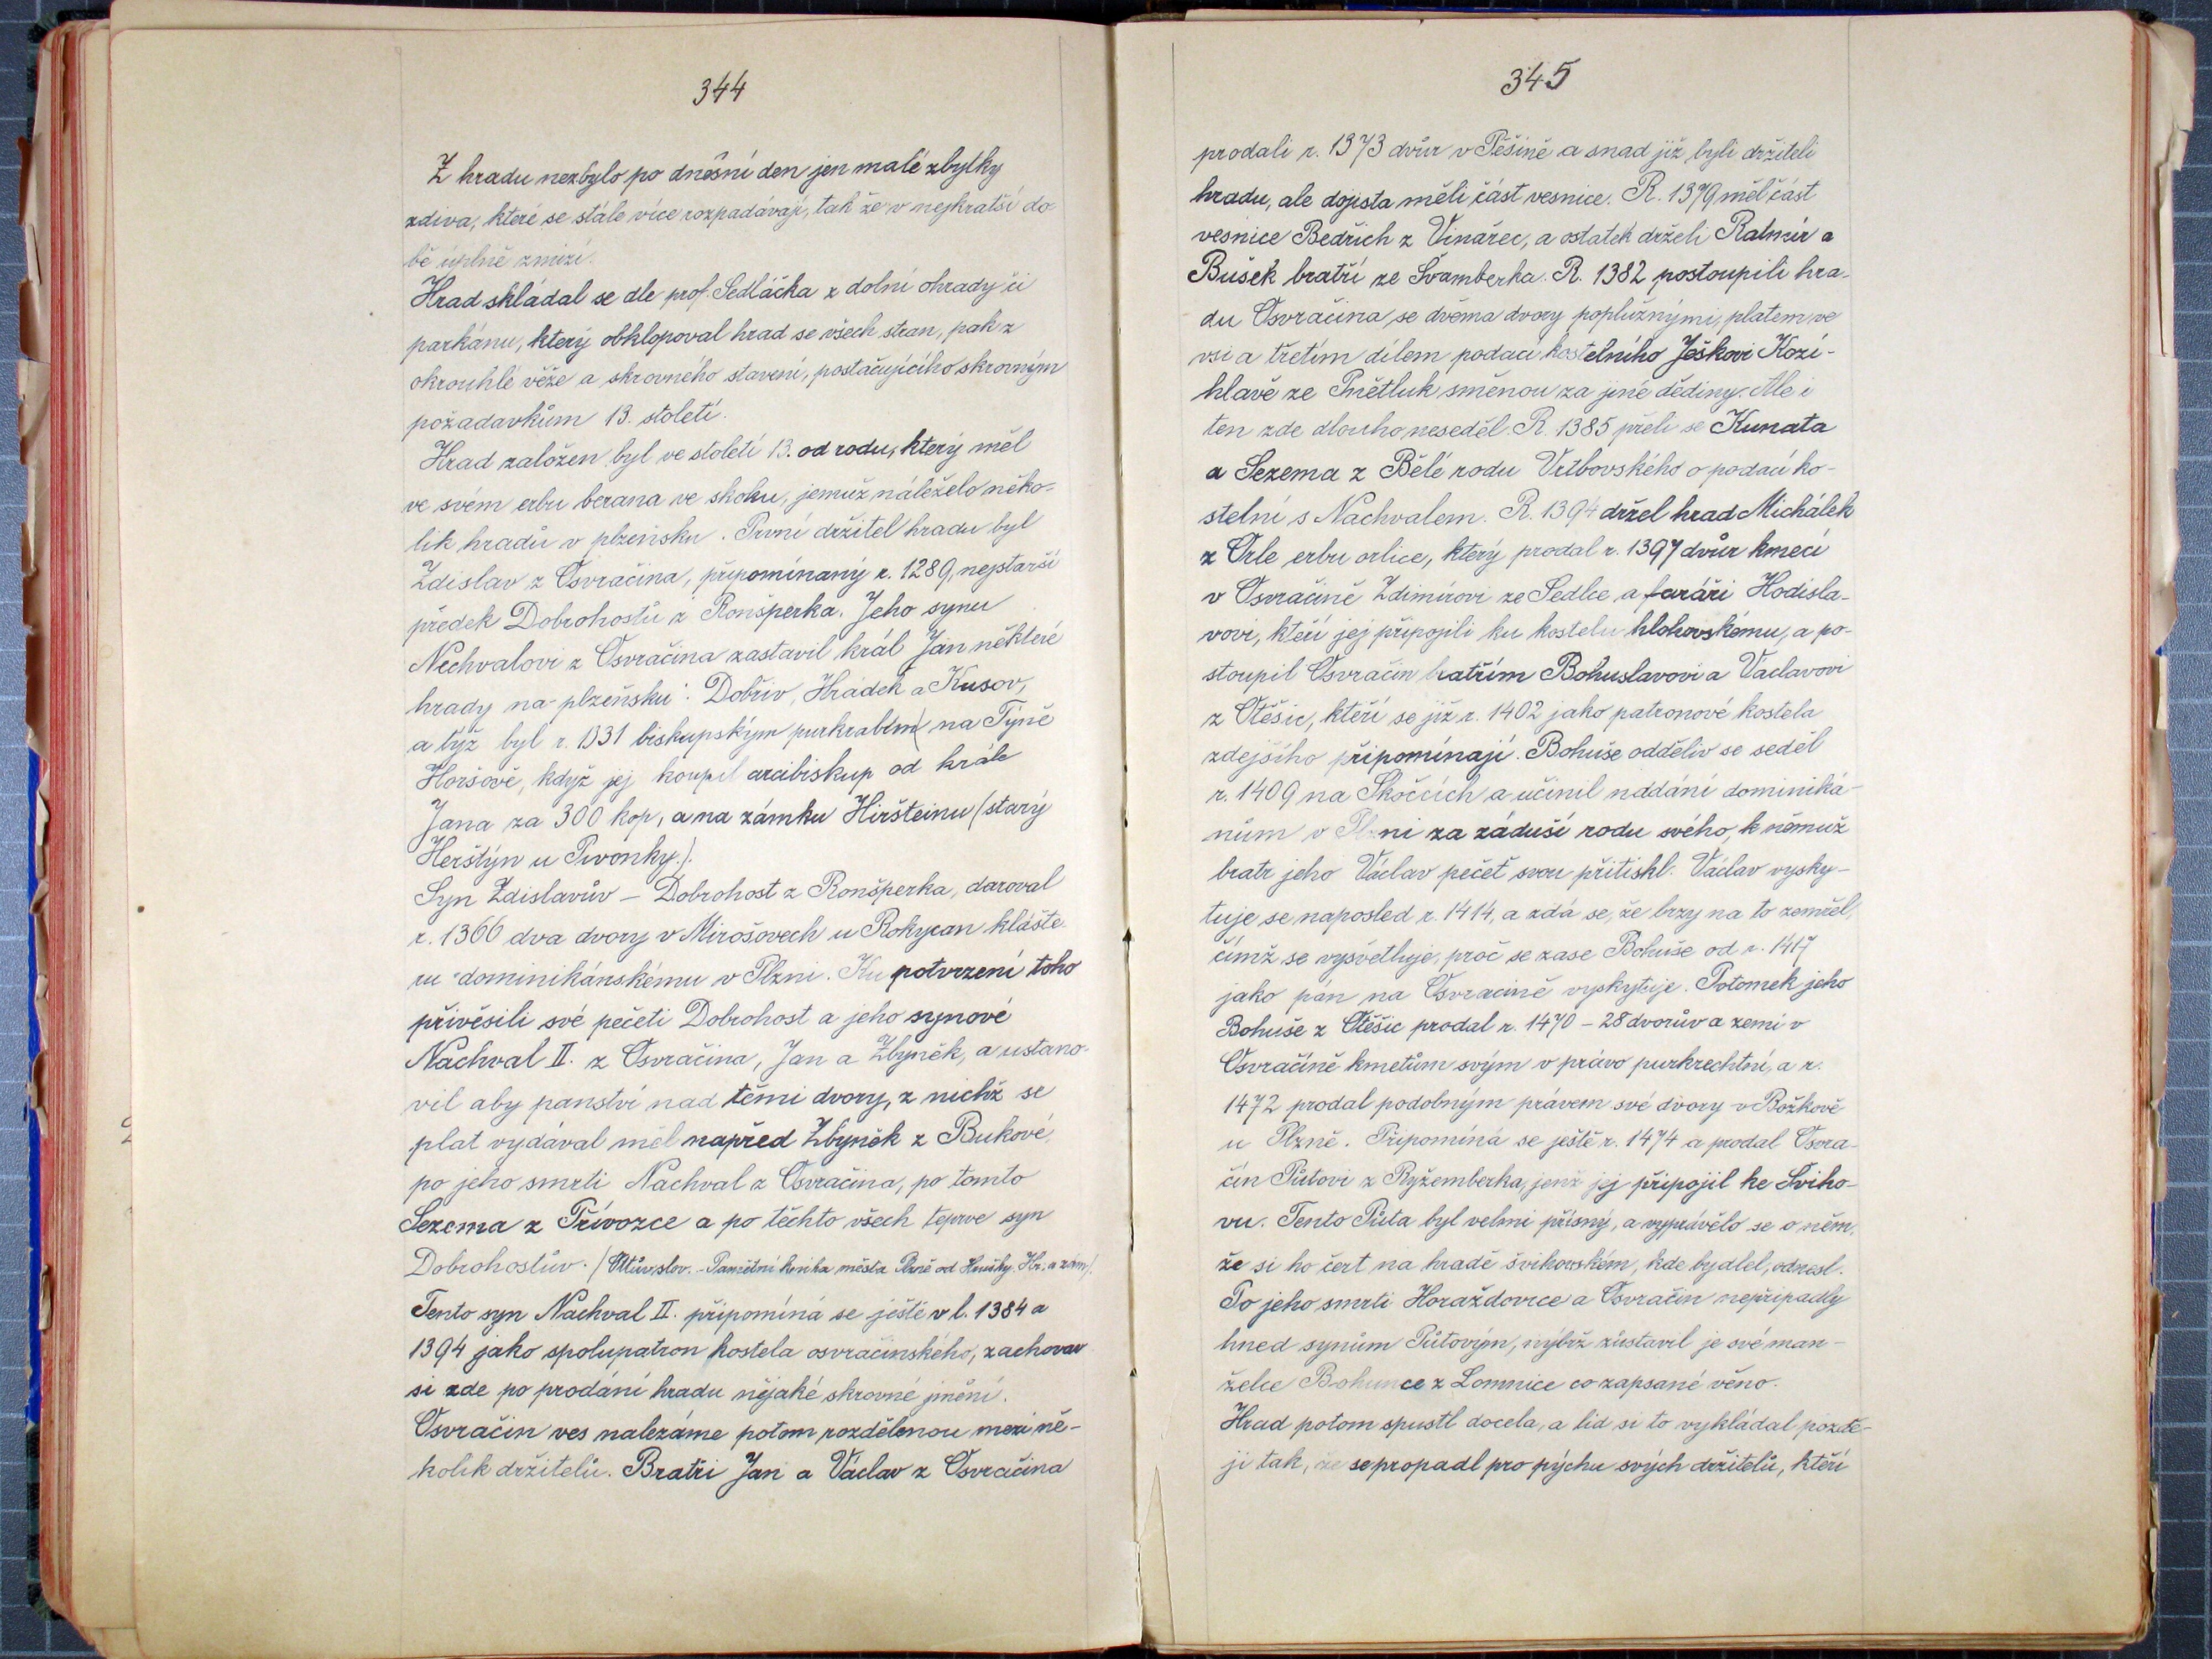 344
Z hradu nezbylo po dnešní den jen malé zbytky
zdiva, které se stále více rozpadávají, tak že v nejkratší do
bě úplně zmizí.
Hrad skládal se dle prof. Sedláčka z dolní ohrady či
parkánu, který obklopoval hrad se všech stran, pak z
okrouhlé věže a skrovného stavení, postačujícího skrovným
požadavkům 13. století.
Hrad založen byl ve století 13. od rodu, který měl
ve svém erbu berana ve skoku, jemuž náleželo něko-
lik hradů v plzeňsku. První držitel hradu byl
Zdislav z Osvračina, připomínaný r. 1289, nejstarší
předek Dobrohostů z Ronšperka. Jeho synu
Nechvalovi z Osvračina zastavil král Jan některé
hrady na plzeňsku: Dobřiv, Hrádek a Kusov,
a týž byl r. 1331 biskupským purkrabím na Týně
Horšově, když jej koupil arcibiskup od krále
Jana za 300 kop, a na zámku Hiršteinu (starý
Herštýn u Pivonky.).
Syn Zdislavův – Dobrohost z Ronšperka, daroval
r. 1366 dva dvory v Mirošovech u Rokycan klášte
ru dominikánskému v Plzni. Ku potvrzení toho
přivěsili své pečeti Dobrohost a jeho synové
Nachval II. z Osvračina, Jan a Zbyněk, a ustano-
vil aby panství nad těmi dvory, z nichž se
plat vydával měl napřed Zbyněk z Bukové,
po jeho smrti Nachval z Osvračina, po tomto
Sezema z Třívozce a po těchto všech teprve syn
Dobrohostův. (Ottův slov. - Pamětní kniha města Plzně od Hrušky. Hr. a zám.)
Tento syn Nachval II. připomíná se ještě v l. 1384 a
1394 jako spolupatron kostela osvračinského, zachovav
si zde po prodání hradu nějaké skrovné jmění.
Osvračin ves nalezáme potom rozdělenou mezi ně-
kolik držitelů. Bratři Jan a Václav z Osvračina
345
prodali r. 1373 dvůr v Pěšině a snad již byli držiteli
hradu, ale dojista měli část vesnice. R. 1379 měl část
vesnice Bedřich z Vinařec, a ostatek drželi Ratmír a
Bušek bratří ze Švamberka. R. 1382 postoupili hra-
du Osvračina se dvěma dvory poplužnými, platem ve
vsi a třetím dílem podací kostelního Ješkovi Kozí-
hlavě ze Pnětluk směnou za jiné dědiny. Ale i
ten zde dlouho neseděl. R. 1385 přeli se Kunata
a Sezema z Bělé rodu Vrtbovského o podací ko-
stelní s Nachvalem. R. 1394 držel hrad Michálek
z Orle erbu orlice, který prodal r. 1397 dvůr kmecí
v Osvračině Zdimírovi ze Sedlce a faráři Hodisla-
vovi, kteří jej připojili ku kostelu hlohovskému, a po-
stoupil Osvračin bratřím Bohuslavovi a Vaclavovi
z Otěšic, kteří se již r. 1402 jako patronové kostela
zdejšího připomínají. Bohuše odděliv se seděl
r. 1409 na Skočcích a učinil nadání dominiká-
nům v Plzni za záduší rodu svého, k němuž
bratr jeho Václav pečeť svou přitiskl. Václav vysky-
tuje se naposled r. 1414, a zdá se, že brzy na to zemřel,
čímž se vysvětluje, proč se zase Bohuše od r. 1417
jako pán na Osvracině vyskytuje. Potomek jeho
Bohuše z Otěšic prodal r. 1470 – 28 dvorův a zemi v
Osvračíně kmetům svým v právo purkrechtní, a r.
1472 prodal podobným právem své dvory v Božkově
u Plzně. Připomíná se ještě r. 1474 a prodal Osvra-
čin Půtovi z Ryžemberka, jenž jej připojil ke Sviho-
vu. Tento Půta byl velmi přísný, a vyprávělo se o něm,
že si ho čert na hradě švihovském, kde bydlel, odnesl.
Po jeho smrti Horažďovice a Osvračin nepřipadly
hned synům Půtovým, nýbrž zůstavil je své man-
želce Bohunce z Lomnice co zapsané věno.
Hrad potom spustl docela, a lid si to vykládal pozdě-
ji tak, že se propadl pro pýchu svých držitelů, kteří